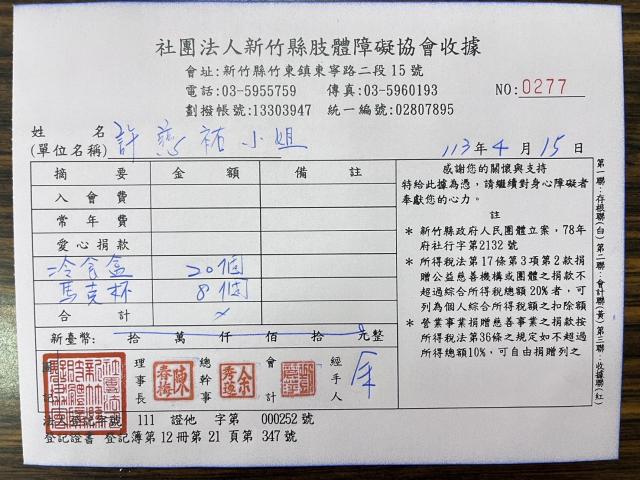 社團法人新竹縣肢體障礙協會收據
會址:新竹縣竹東鎮東寧路二段15號
電話:03-5955759 傳真:03-5960193
NO:0277
劃撥帳號:13303947 統一編號:02807895
姓名
(單位名稱) 許慈祐小姐
113年4月15日
摘要 金額 備註
入會費
常年費
愛心捐款
冷食盒 20個
馬克杯 8個
合計
新臺幣: 拾 萬 仟 佰 拾 元整
感謝您的關懷與支持
特給此據為憑,請繼續對身心障礙者
奉獻您的心力。
註
* 新竹縣政府人民團體立案,78年
府社行字第2132號
* 所得稅法第17條第3項第2款捐
贈公益慈善機構或團體之捐款不
超過綜合所得稅總額20%者,可
列為個人綜合所得稅額之扣除額
* 營業事業捐贈慈善事業之捐款按
所得稅法第36條之規定如不超過
所得總額10%,可自由捐贈列之
第一聯:存根聯(白) 第二聯:會計聯(黃) 第三聯:收據聯(紅)
理事長 陳春梅
總幹事 余秀蓮
會計
經手人 余
111 證他 字第 000252號
登記證書 登記簿第12冊第21頁第347號